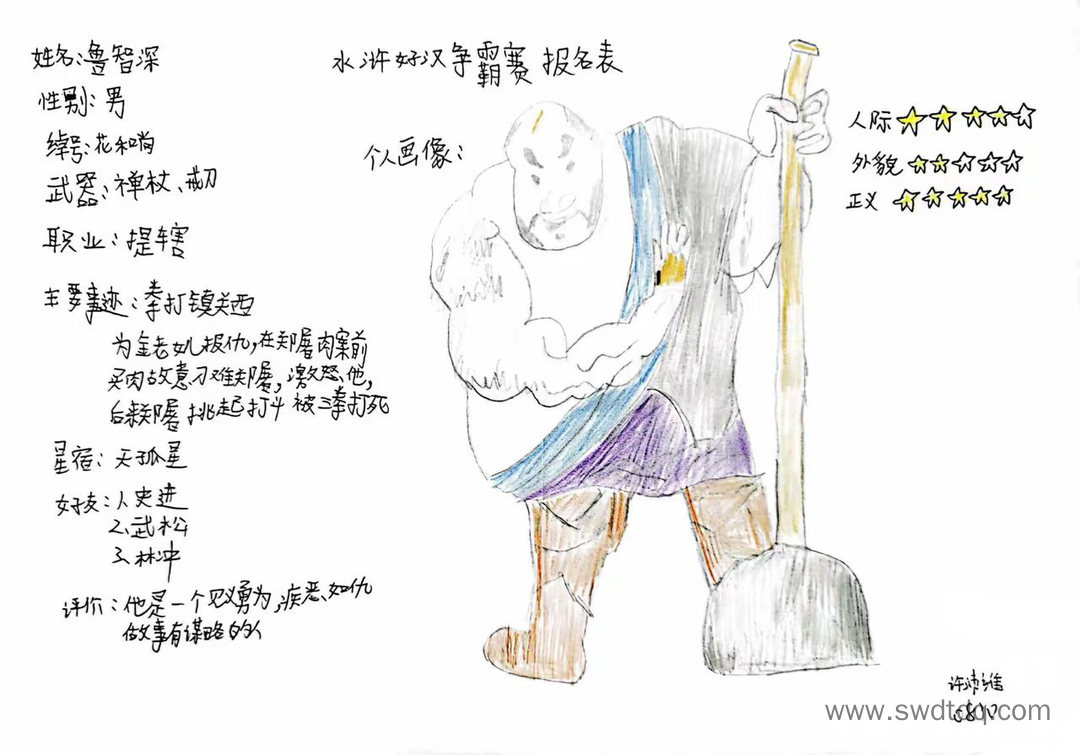 水浒好汉争霸赛 报名表
姓名:鲁智深
性别:男
绰号:花和尚
武器:禅杖、戒刀
职业:提辖
主要事迹:拳打镇关西
为金老儿报仇,在郑屠肉案前
买肉故意刁难郑屠,激怒他,
后郑屠挑起打斗被三拳打死
星宿:天孤星
好友:1、史进
2、武松
3、林冲
评价:他是一个见义勇为,疾恶如仇
做事有谋略的人
个人画像:
人际
外貌
正义
www.swdtdq.com